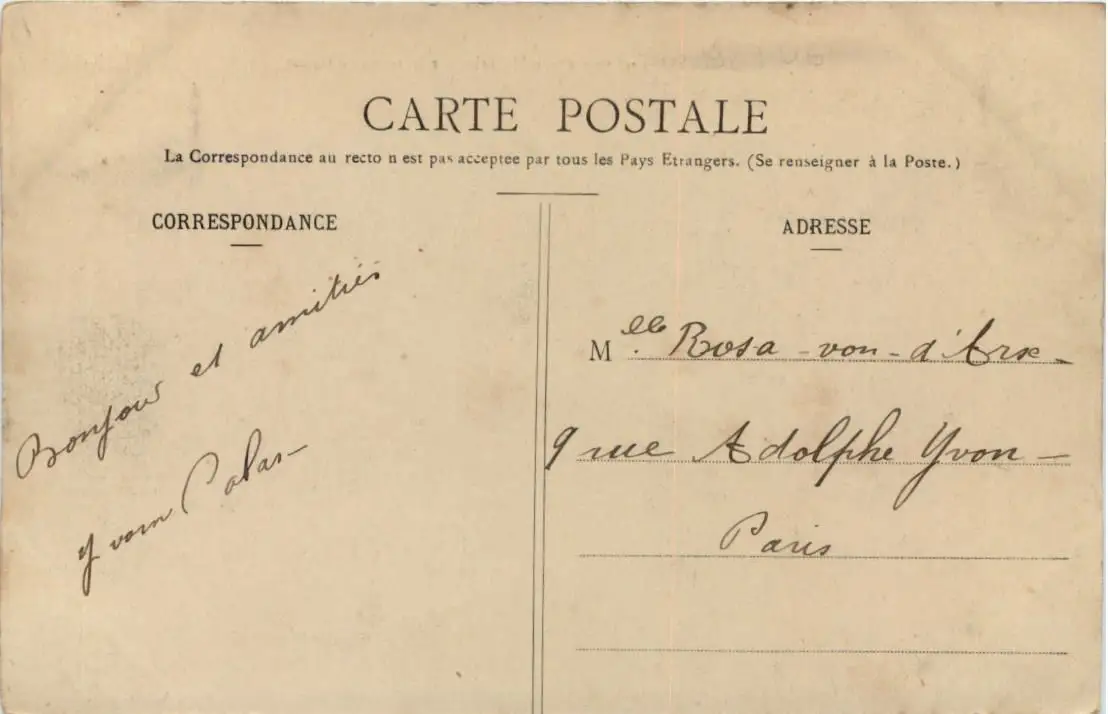 CARTE POSTALE
La Correspondance au recto n est pas acceptee par tous les Pays Etrangers. (Se renseigner à la Poste.)
CORRESPONDANCE
Bonjour et amitiés
ADRESSE
Melle. Rosa - von - d'Arx -
9 rue Adolphe Yvon -
Paris